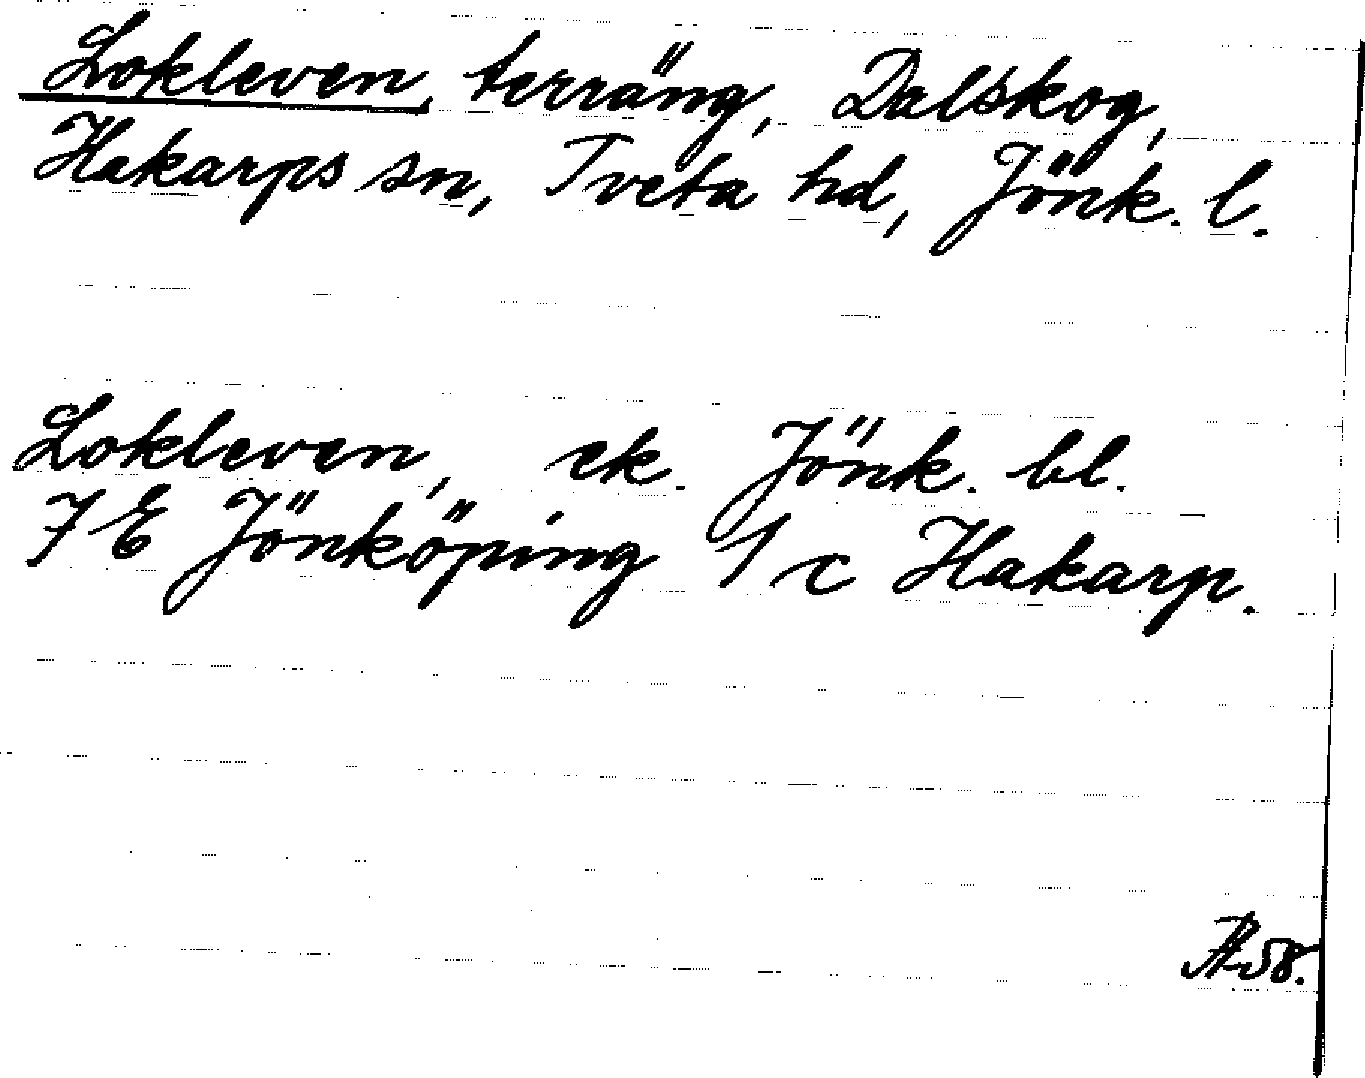 Lokleven, terräng, Dalskog,
Hakarps sn, Tveta hd, Jönk. l.
Lokleven, ek. Jönk. bl.
7 E Jönköping 1 c Hakarp.
58.